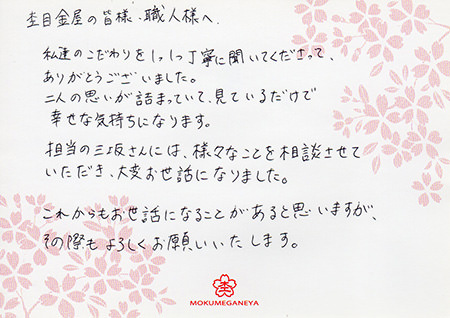 杢目金屋の皆様、職人様へ
私達のこだわりを1つ1つ丁寧に聞いてくださって、
ありがとうございました。
二人の思いが詰まっていて、見ているだけで
幸せな気持ちになります。
担当の三坂さんには、様々なことを相談させて
いただき、大変お世話になりました。
これからもお世話になることがあると思いますが、
その際もよろしくお願いいたします。
杢
MOKUMEGANEYA